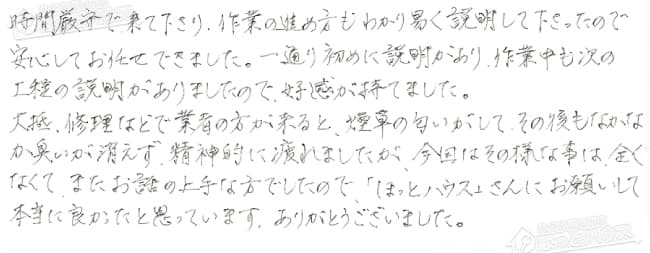 時間厳守で来て下さり、作業の進め方もわかり易く説明して下さったので
安心してお任せできました。一通り初めに説明があり、作業中も次の
工程の説明がありましたので、好感が持てました。
大抵、修理などで業者の方が来ると、煙草の匂いがして、その後もなかな
か臭いが消えず、精神的に疲れましたが、今回はその様な事は、全く
なくて、またお話の上手な方でしたので、「ほっとハウス」さんにお願いして
本当に良かったと思っています。ありがとうございました。